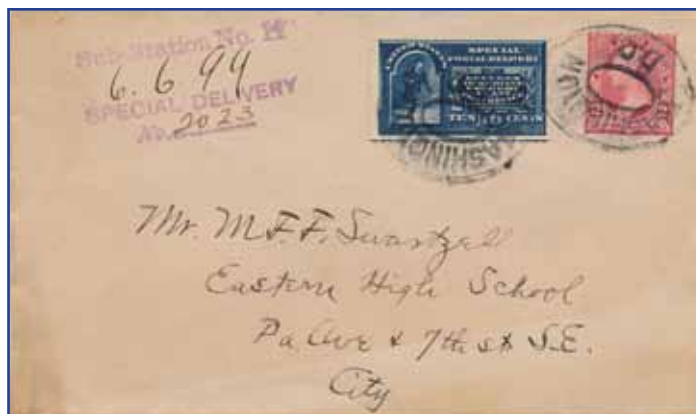 Sub-Station No. 11
6. 6 99
SPECIAL DELIVERY
No. 2023
SPECIAL
POSTAL DELIVERY
TEN CENTS
WASHINGTON
WASHINGTON
D.C.
Mr. M.F.F. Swartzell
Eastern High School
Pa Ave & 7th st S.E.
City